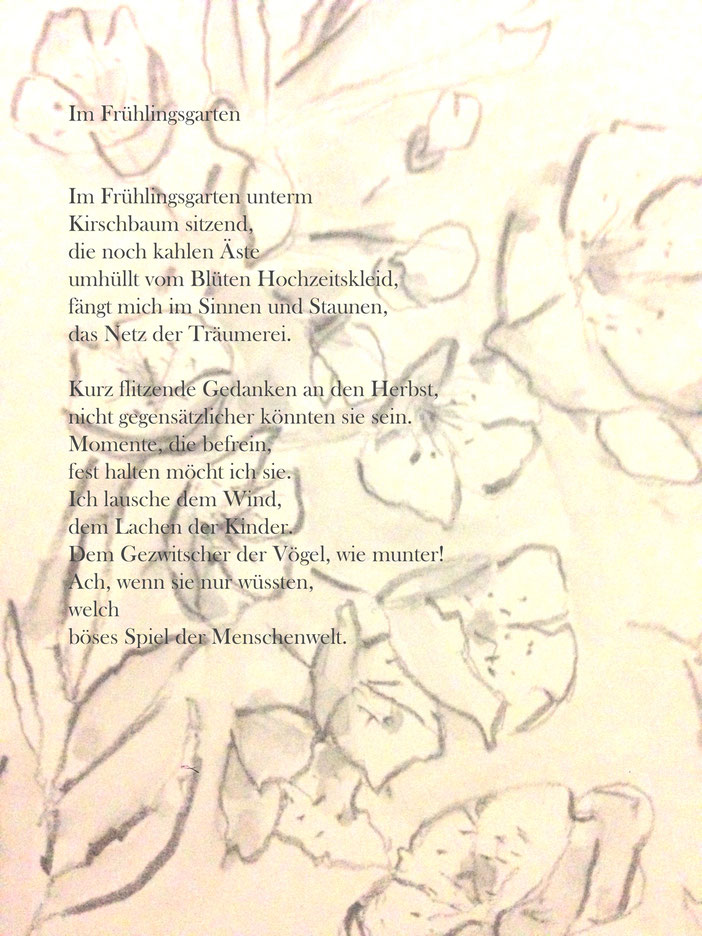 Im Frühlingsgarten
Im Frühlingsgarten unterm
Kirschbaum sitzend,
die noch kahlen Äste
umhüllt vom Blüten Hochzeitskleid,
fängt mich im Sinnen und Staunen,
das Netz der Träumerei.
Kurz flitzende Gedanken an den Herbst,
nicht gegensätzlicher könnten sie sein.
Momente, die befrein,
fest halten möcht ich sie.
Ich lausche dem Wind,
dem Lachen der Kinder.
Dem Gezwitscher der Vögel, wie munter!
Ach, wenn sie nur wüssten,
welch
böses Spiel der Menschenwelt.